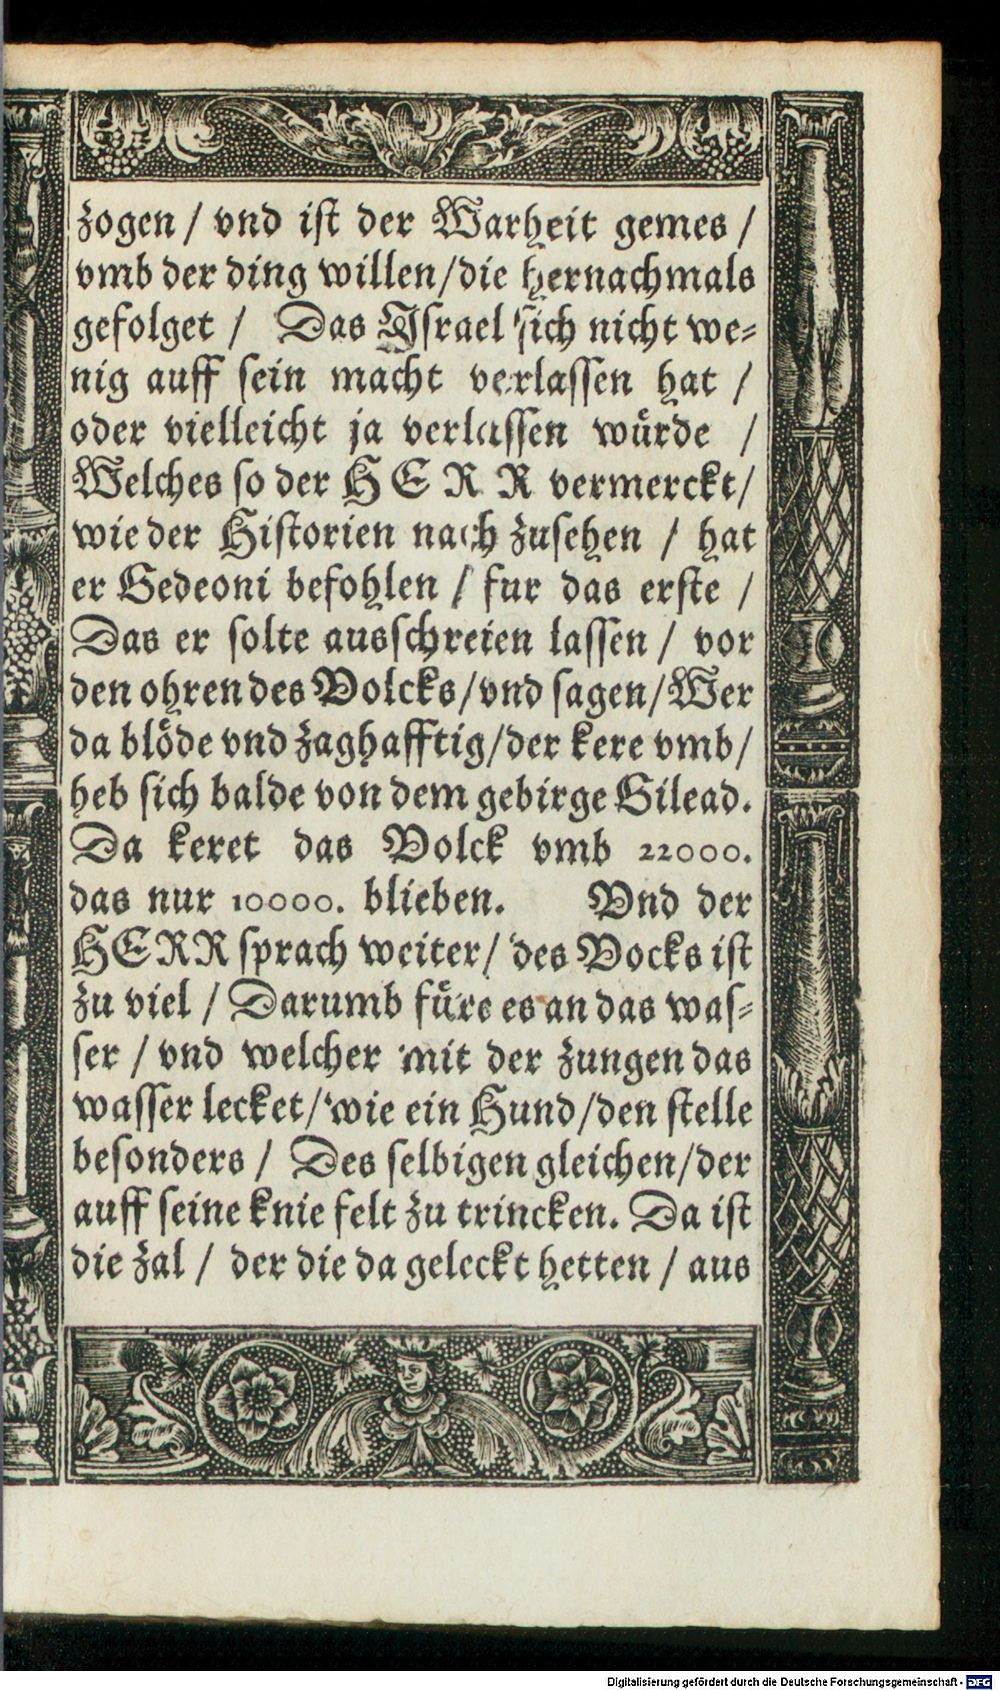 zogen / vnd ist der Warheit gemes /
vmb der ding willen/die hernachmals
gefolget / Das Israel sich nicht we⸗
nig auff sein macht verlassen hat /
oder vielleicht ja verlassen würde /
Welches so der HERR vermerckt/
wie der Historien nach zusehen / hat
er Gedeoni befohlen / fur das erste /
Das er solte ausschreien lassen / vor
den ohren des Volcks/vnd sagen/Wer
da blöde vnd zaghafftig/der kere vmb/
heb sich balde von dem gebirge Gilead.
Da keret das Volck vmb 22000.
das nur 10000. blieben. Vnd der
HERR sprach weiter/ des Vocks ist
zu viel / Darumb füre es an das was⸗
ser / vnd welcher mit der zungen das
wasser lecket/wie ein Hund/den stelle
besonders / Des selbigen gleichen/der
auff seine knie felt zu trincken. Da ist
die zal / der die da geleckt hetten / aus
Digitalisierung gefördert durch die Deutsche Forschungsgemeinschaft - DFG